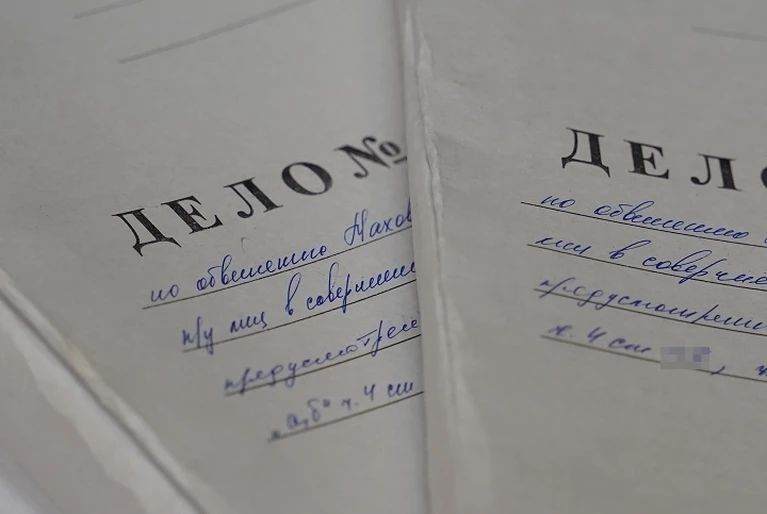 ДЕЛО №
по обвинению Махов
п/у лиц в соверше
предусмотрен
„а,б" ч. 4 ст
ДЕЛО
по обвинению
лиц в соверше
предусмотренн
ч. 4 ст